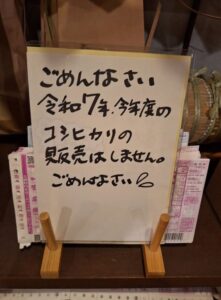 ごめんなさい
令和7年.今年度の
コシヒカリの
販売はしません。
ごめんなさい